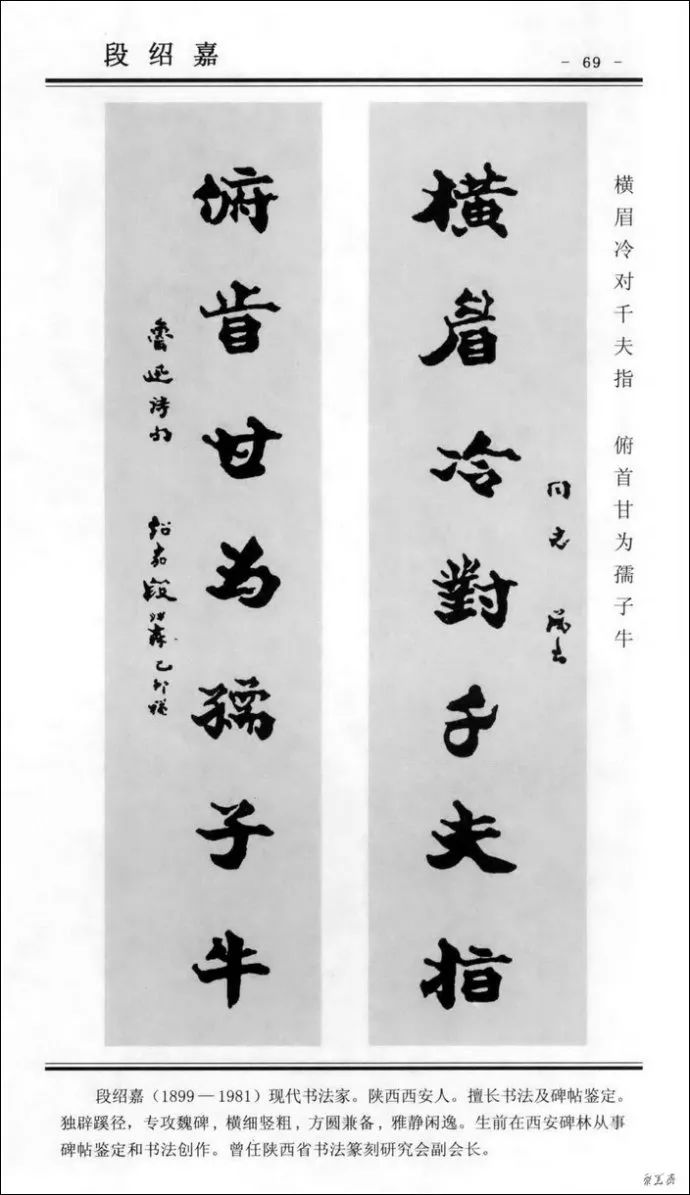 段绍嘉
- 69 -
横眉冷对千夫指 俯首甘为孺子牛
同志 属书
横眉冷對千夫指
俯首甘为孺子牛
魯迅诗句
段绍嘉（1899—1981）现代书法家。陕西西安人。擅长书法及碑帖鉴定。
独辟蹊径，专攻魏碑，横细竖粗，方圆兼备，雅静闲逸。生前在西安碑林从事
碑帖鉴定和书法创作。曾任陕西省书法篆刻研究会副会长。